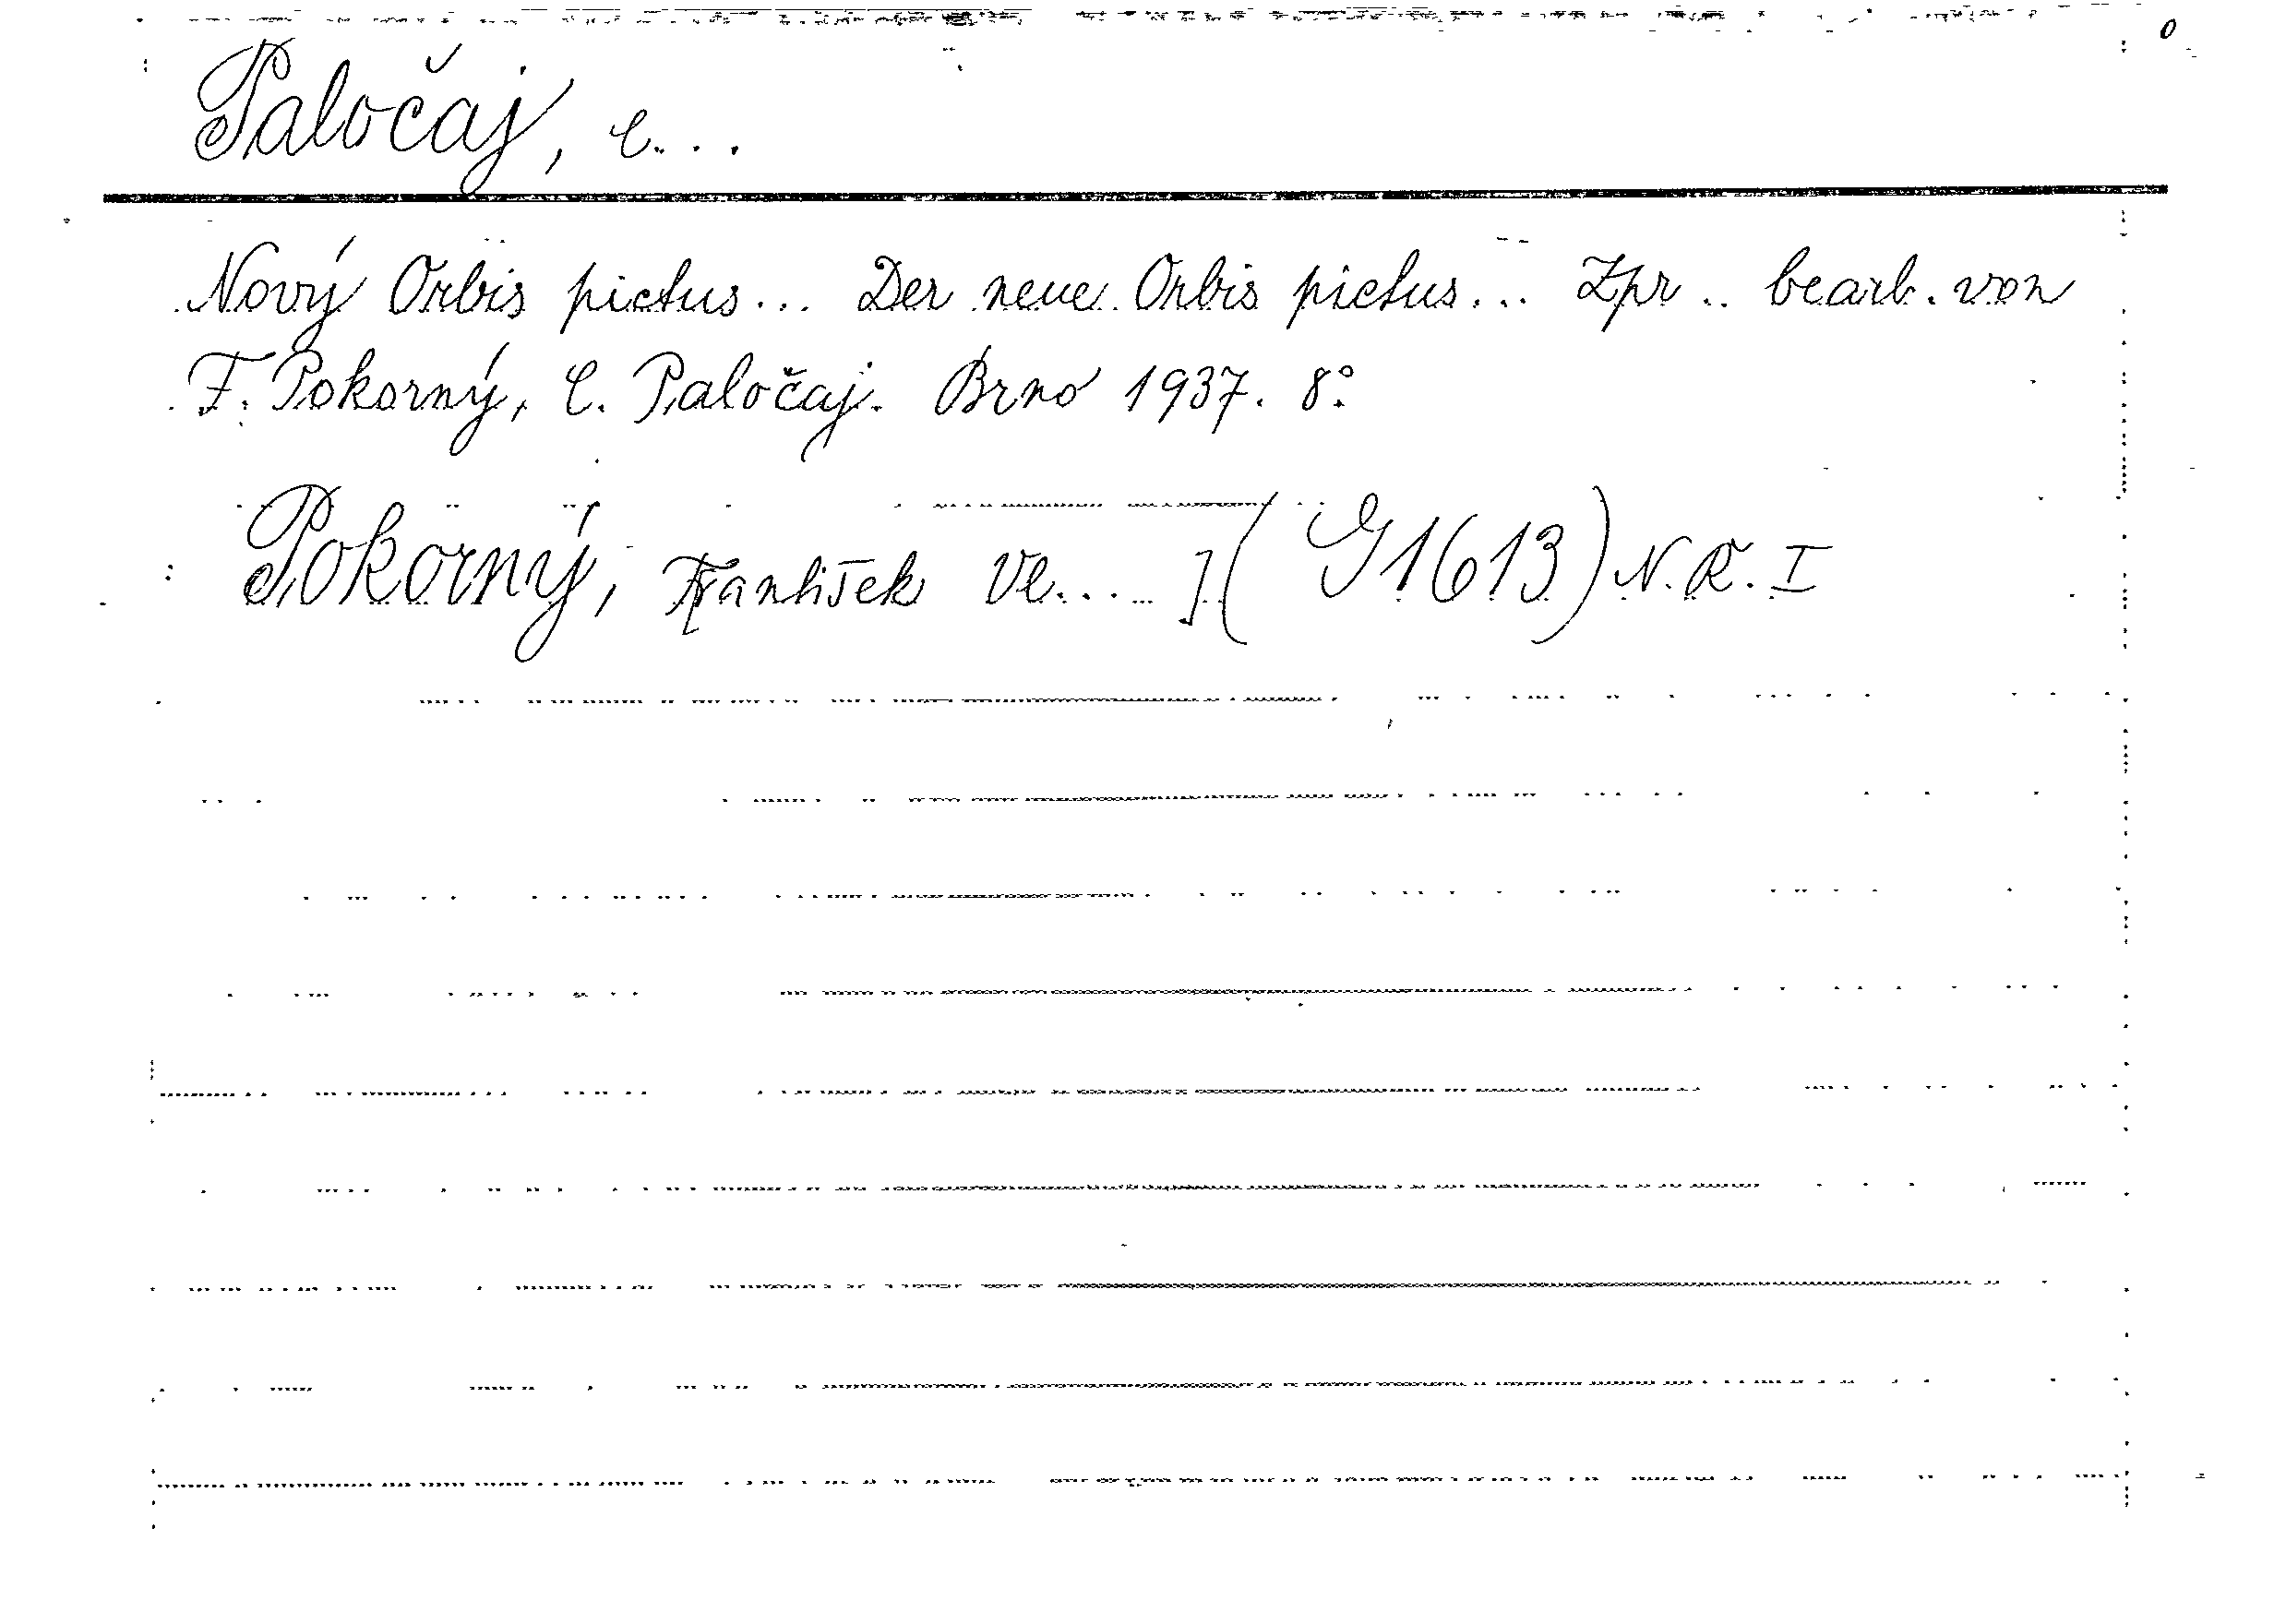 Paločaj, C...
Nový Orbis pictus... Der neue Orbis pictus... Zpr.. bearb. von
F. Pokorný, C. Paločaj. Brno 1937. 8°
Pokorný, František Vl.... ] (G 1613) N.R. I